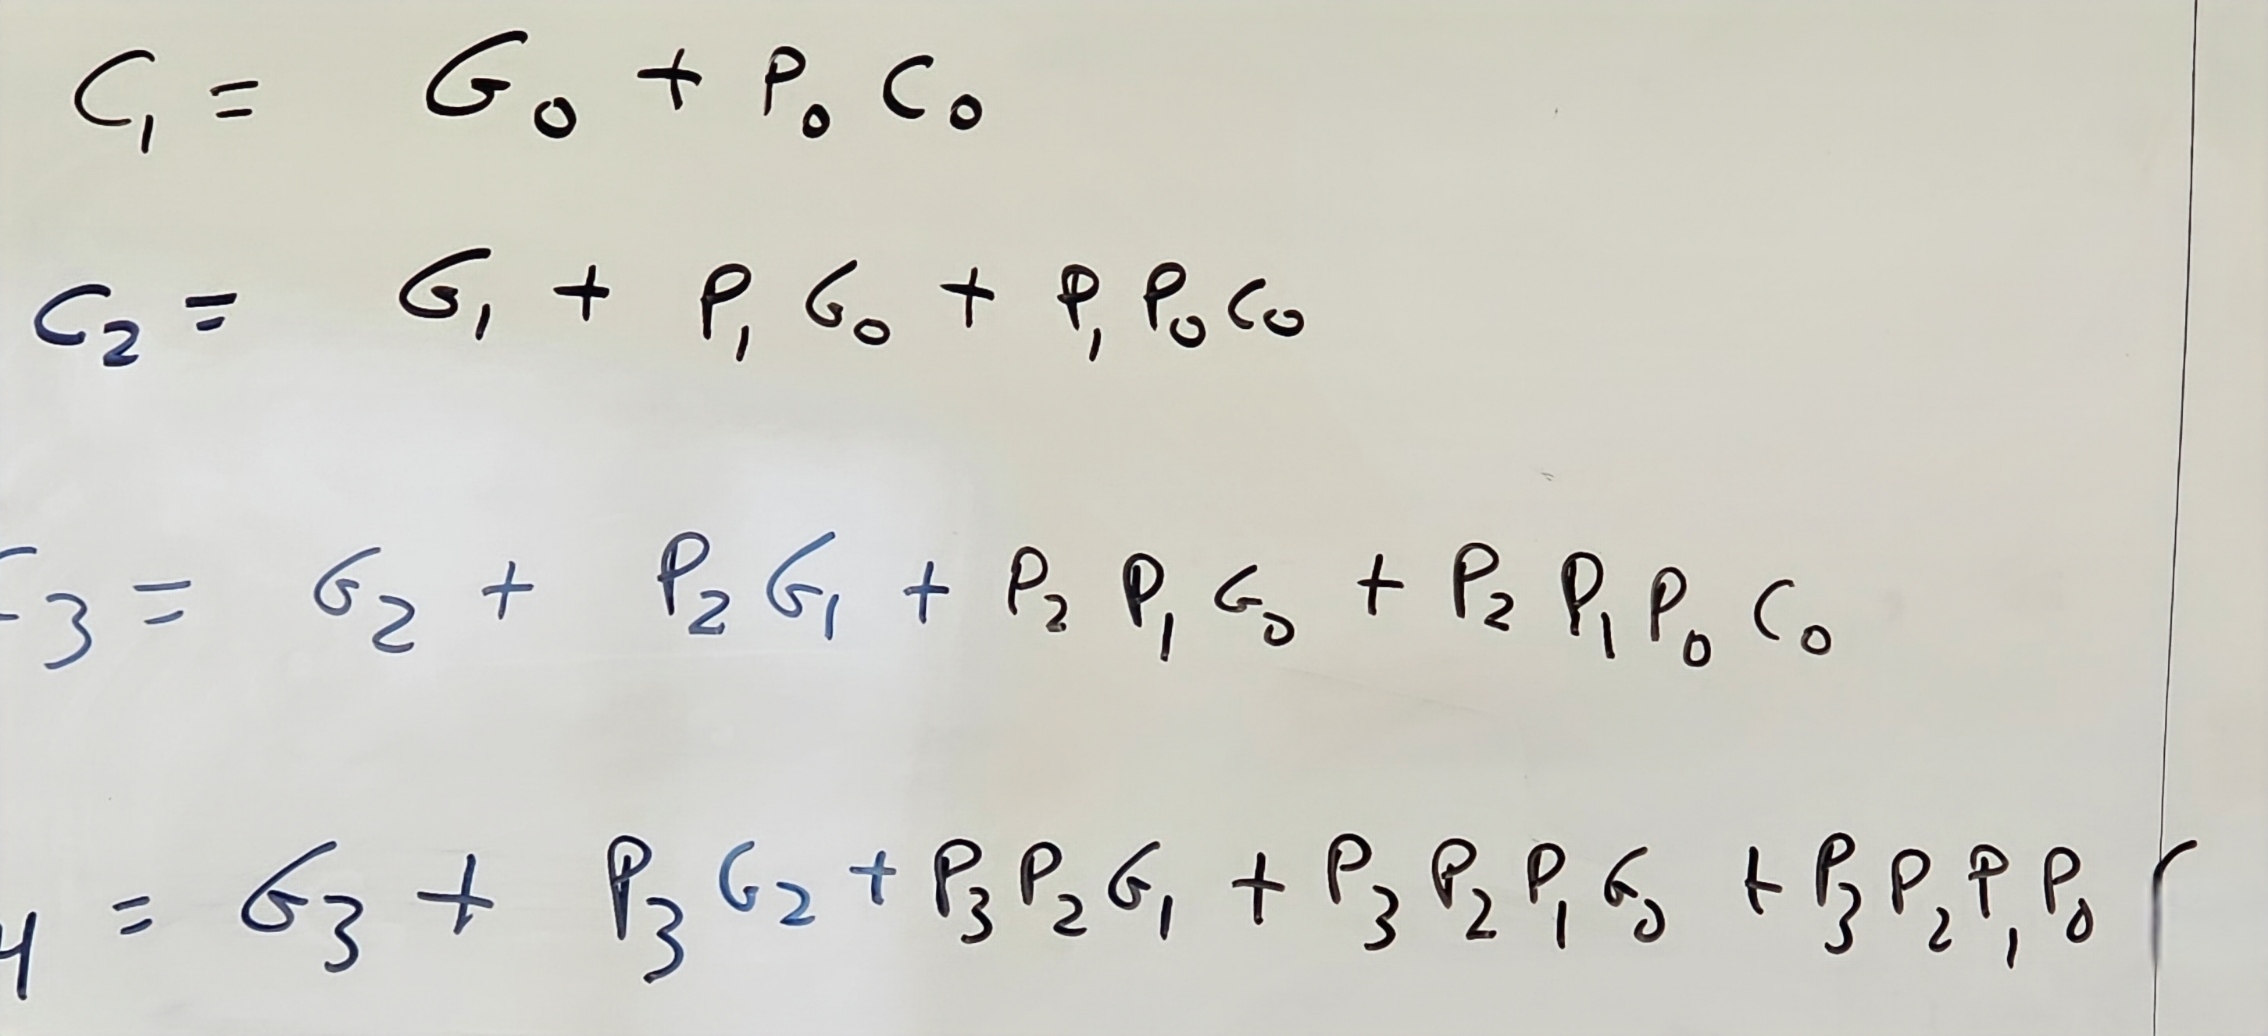 C₁ = G₀ + P₀ C₀
C₂ = G₁ + P₁ G₀ + P₁ P₀ C₀
C₃ = G₂ + P₂ G₁ + P₂ P₁ G₀ + P₂ P₁ P₀ C₀
₄ = G₃ + P₃ G₂ + P₃ P₂ G₁ + P₃ P₂ P₁ G₀ + P₃ P₂ P₁ P₀